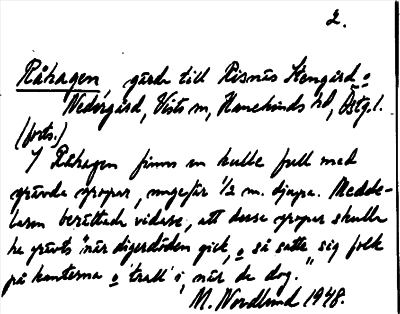 2.
Råhagen, gärde till Risnäs Storgård o
Nedergård, Vists sn, Hanekinds hd, Östg.l.
(forts.)
I Råhagen finns en kulle full med
grävda gropar, ungefär 1/2 m. djupa. Medde-
laren berättade vidare, att dessa gropar skulle
ha grävts "när digerdöden gick, o så satte sig folk
på kanterna o 'trall' i, när de dog."
M. Nordlund 1948.